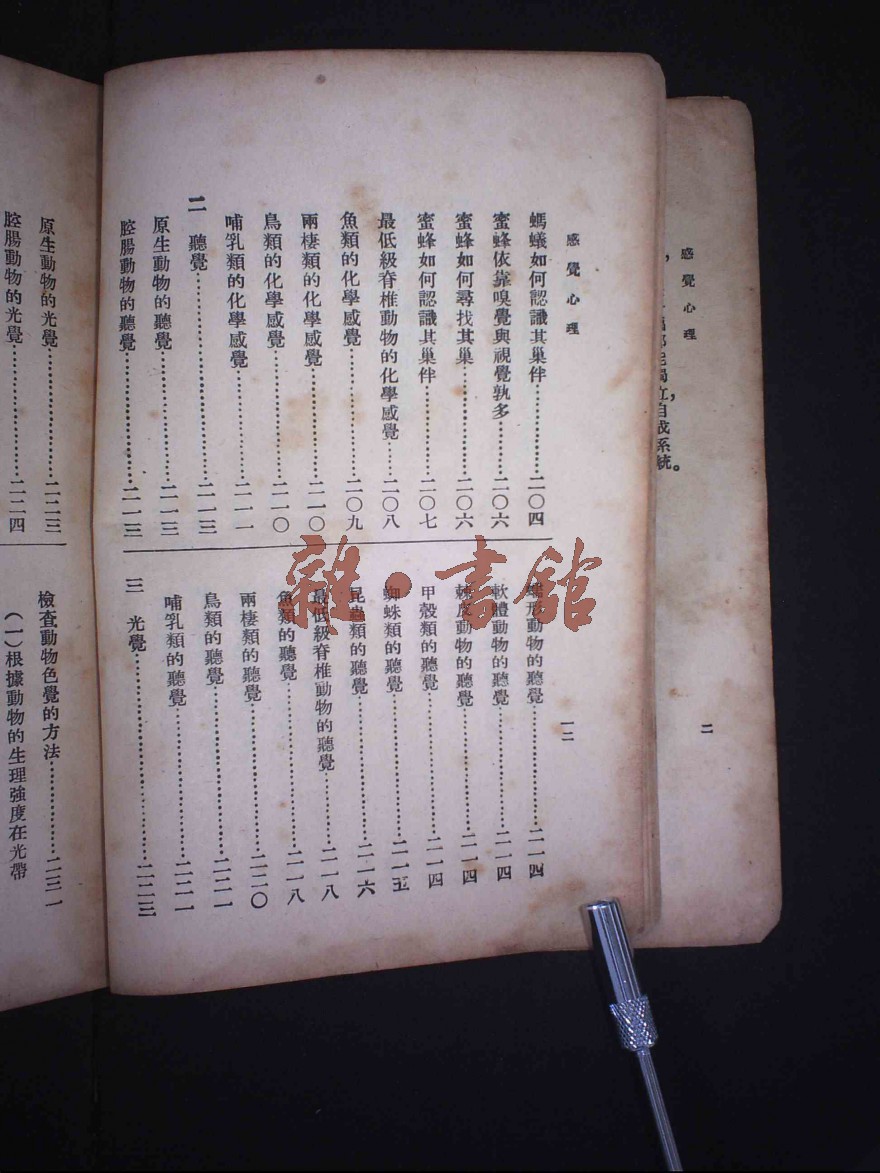 感覺心理
二
感覺心理
一二
螞蟻如何認識其巢伴⋯⋯二〇四
蜜蜂依靠嗅覺與視覺孰多⋯⋯二〇六
蜜蜂如何尋找其巢⋯⋯二〇六
蜜蜂如何認識其巢伴⋯⋯二〇七
最低級脊椎動物的化學感覺⋯⋯二〇八
魚類的化學感覺⋯⋯二〇九
兩棲類的化學感覺⋯⋯二一〇
鳥類的化學感覺⋯⋯二一〇
哺乳類的化學感覺⋯⋯二一一
二 聽覺⋯⋯二一三
原生動物的聽覺⋯⋯二一三
腔腸動物的聽覺⋯⋯二一三
蠕形動物的聽覺⋯⋯二一四
軟體動物的聽覺⋯⋯二一四
棘皮動物的聽覺⋯⋯二一四
甲殼類的聽覺⋯⋯二一四
蜘蛛類的聽覺⋯⋯二一五
昆蟲類的聽覺⋯⋯二一六
最低級脊椎動物的聽覺⋯⋯二一八
魚類的聽覺⋯⋯二一八
兩棲類的聽覺⋯⋯二二〇
鳥類的聽覺⋯⋯二二一
哺乳類的聽覺⋯⋯二二一
三 光覺⋯⋯二二三
原生動物的光覺⋯⋯二二三
腔腸動物的光覺⋯⋯二二四
檢查動物色覺的方法⋯⋯二三一
（一）根據動物的生理強度在光帶
雜·書館